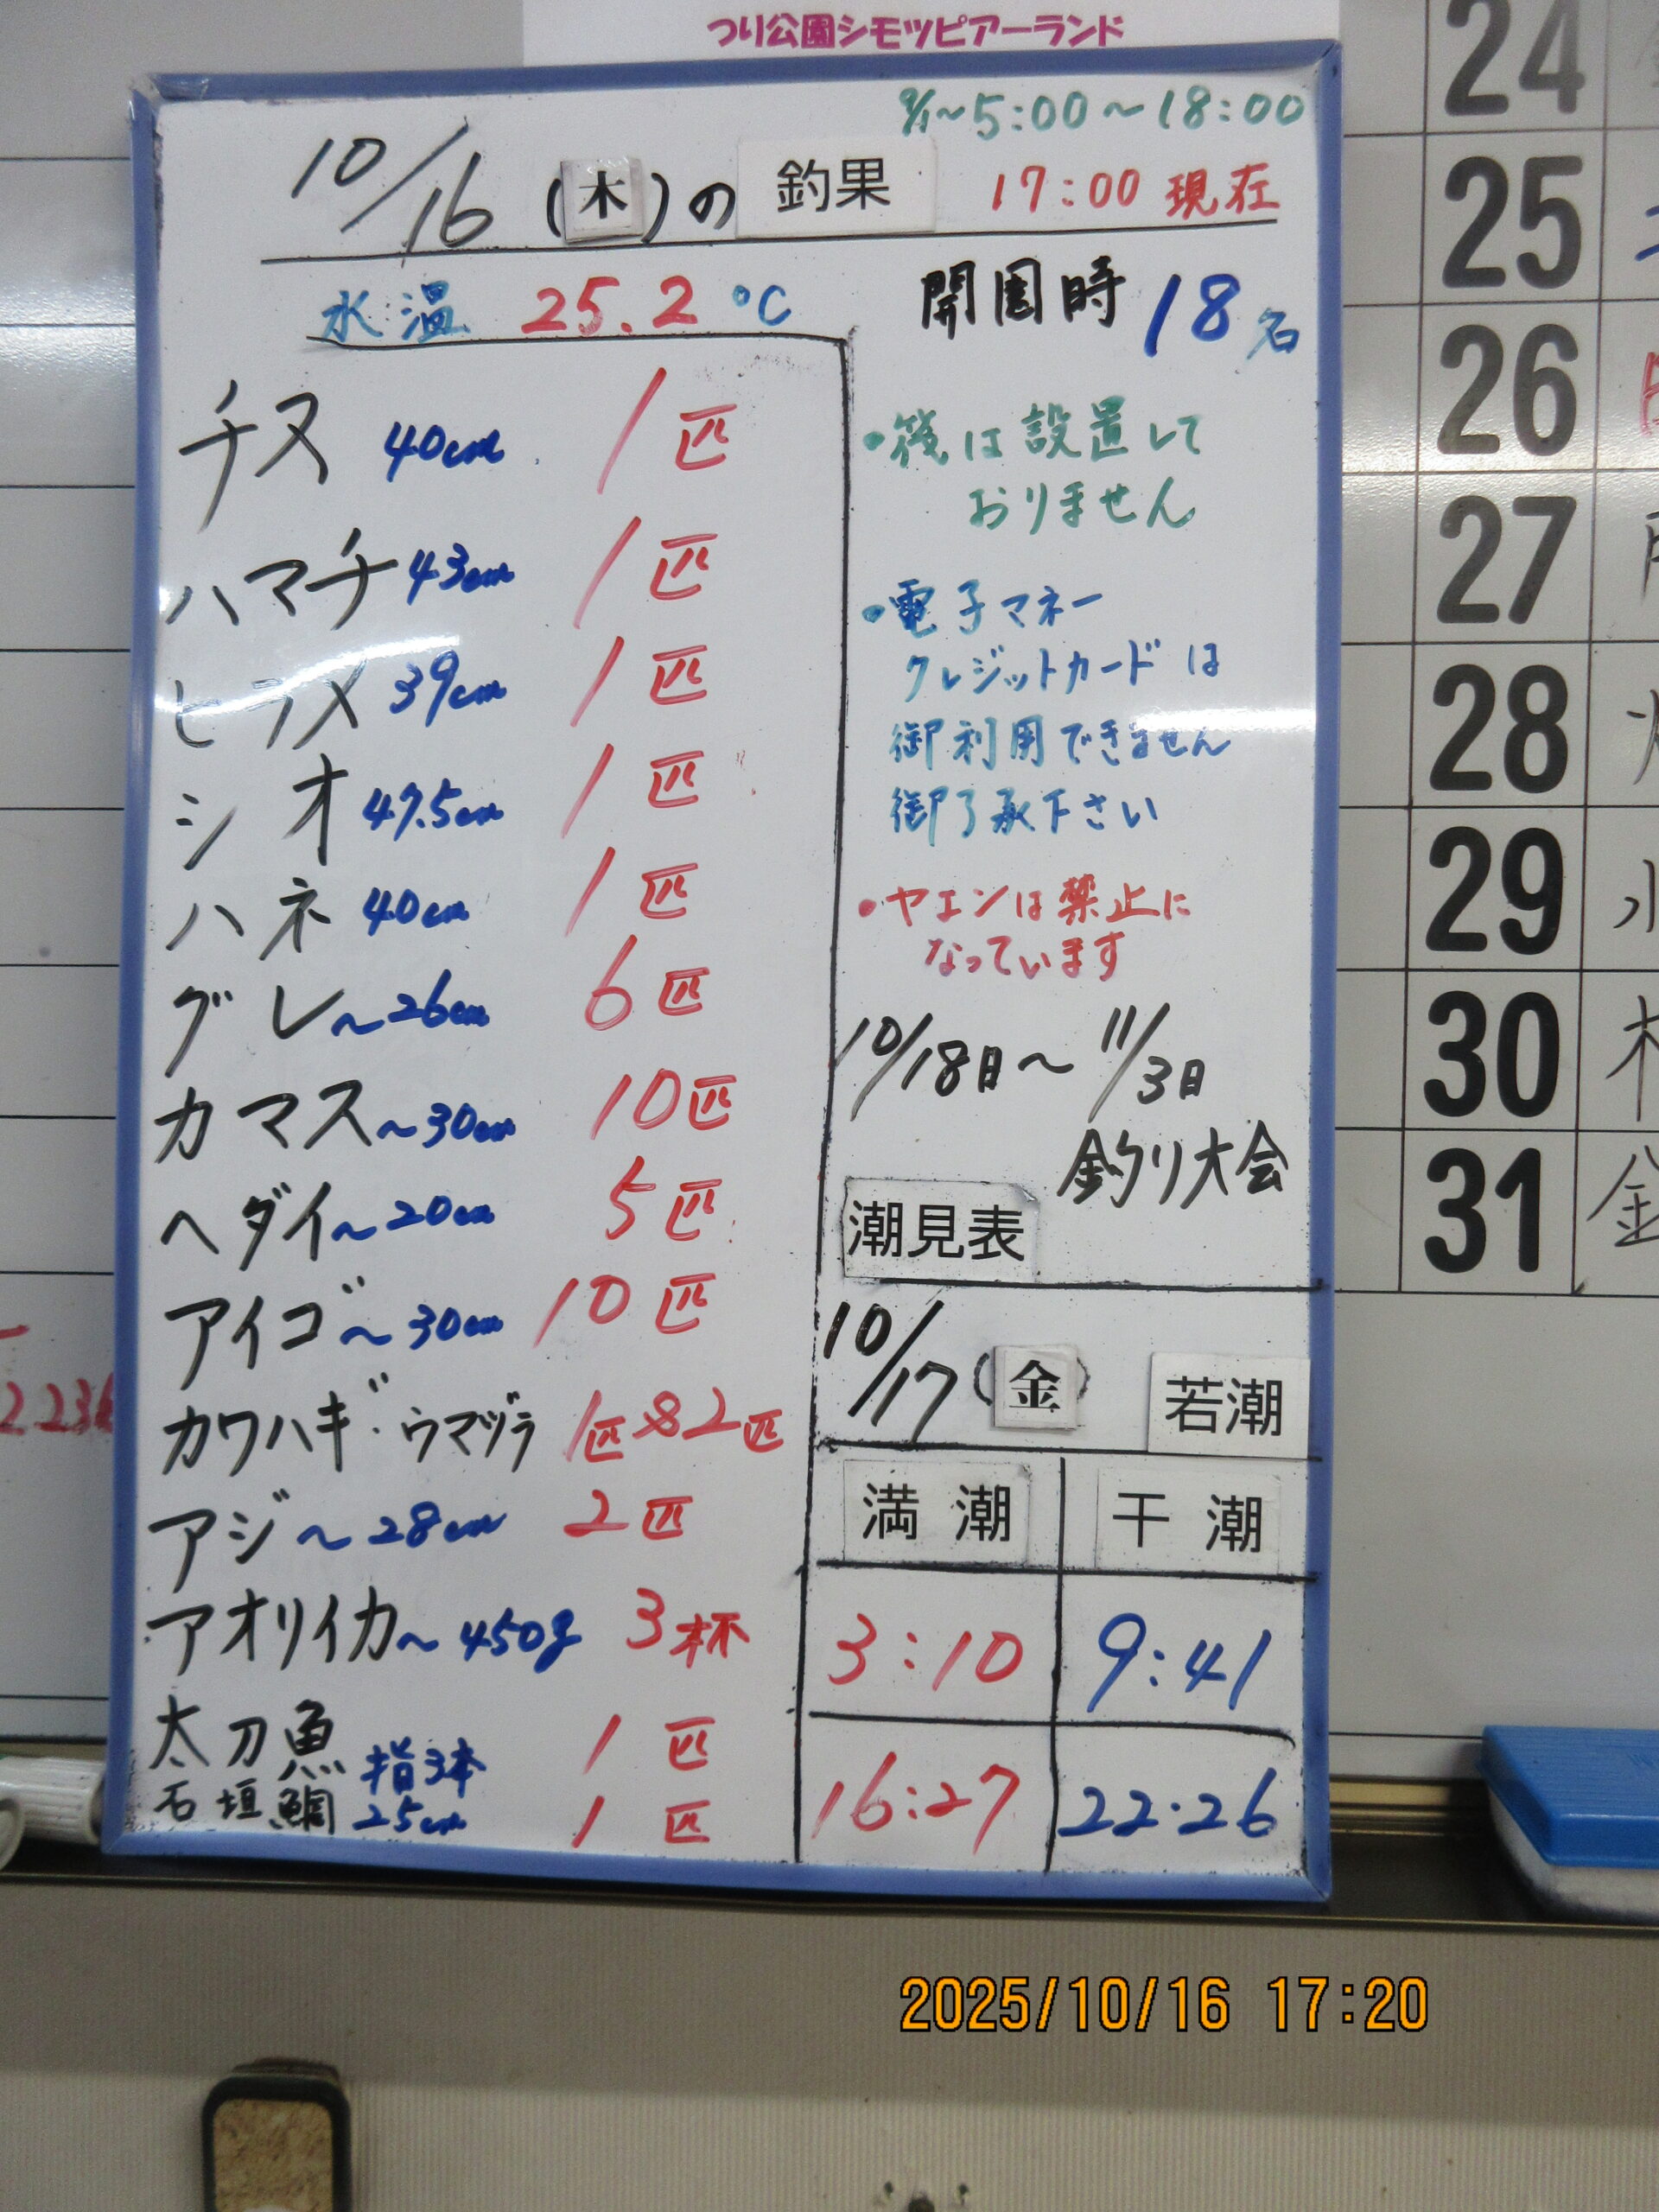 つり公園シモツピアーランド
9/1～5:00～18:00
10/16(木)の釣果 17:00現在
水温 25.2℃ 開園時 18名
チヌ 40cm 1匹
ハマチ 43cm 1匹
ヒラメ 39cm 1匹
シオ 47.5cm 1匹
ハネ 40cm 1匹
グレ～26cm 6匹
カマス～30cm 10匹
ヘダイ～20cm 5匹
アイゴ～30cm 10匹
カワハギ・ウマヅラ 1匹&2匹
アジ～28cm 2匹
アオリイカ～450g 3杯
太刀魚 指3本 1匹
石垣鯛 25cm 1匹
・筏は設置して
おりません
・電子マネー
クレジットカードは
御利用できません
御了承下さい
・ヤエンは禁止に
なっています
10/18日～11/3日
釣り大会
潮見表
10/17(金) 若潮
満潮 干潮
3:10 9:41
16:27 22:26
24
25
26
27
28
29 水
30 木
31 金
2025/10/16 17:20